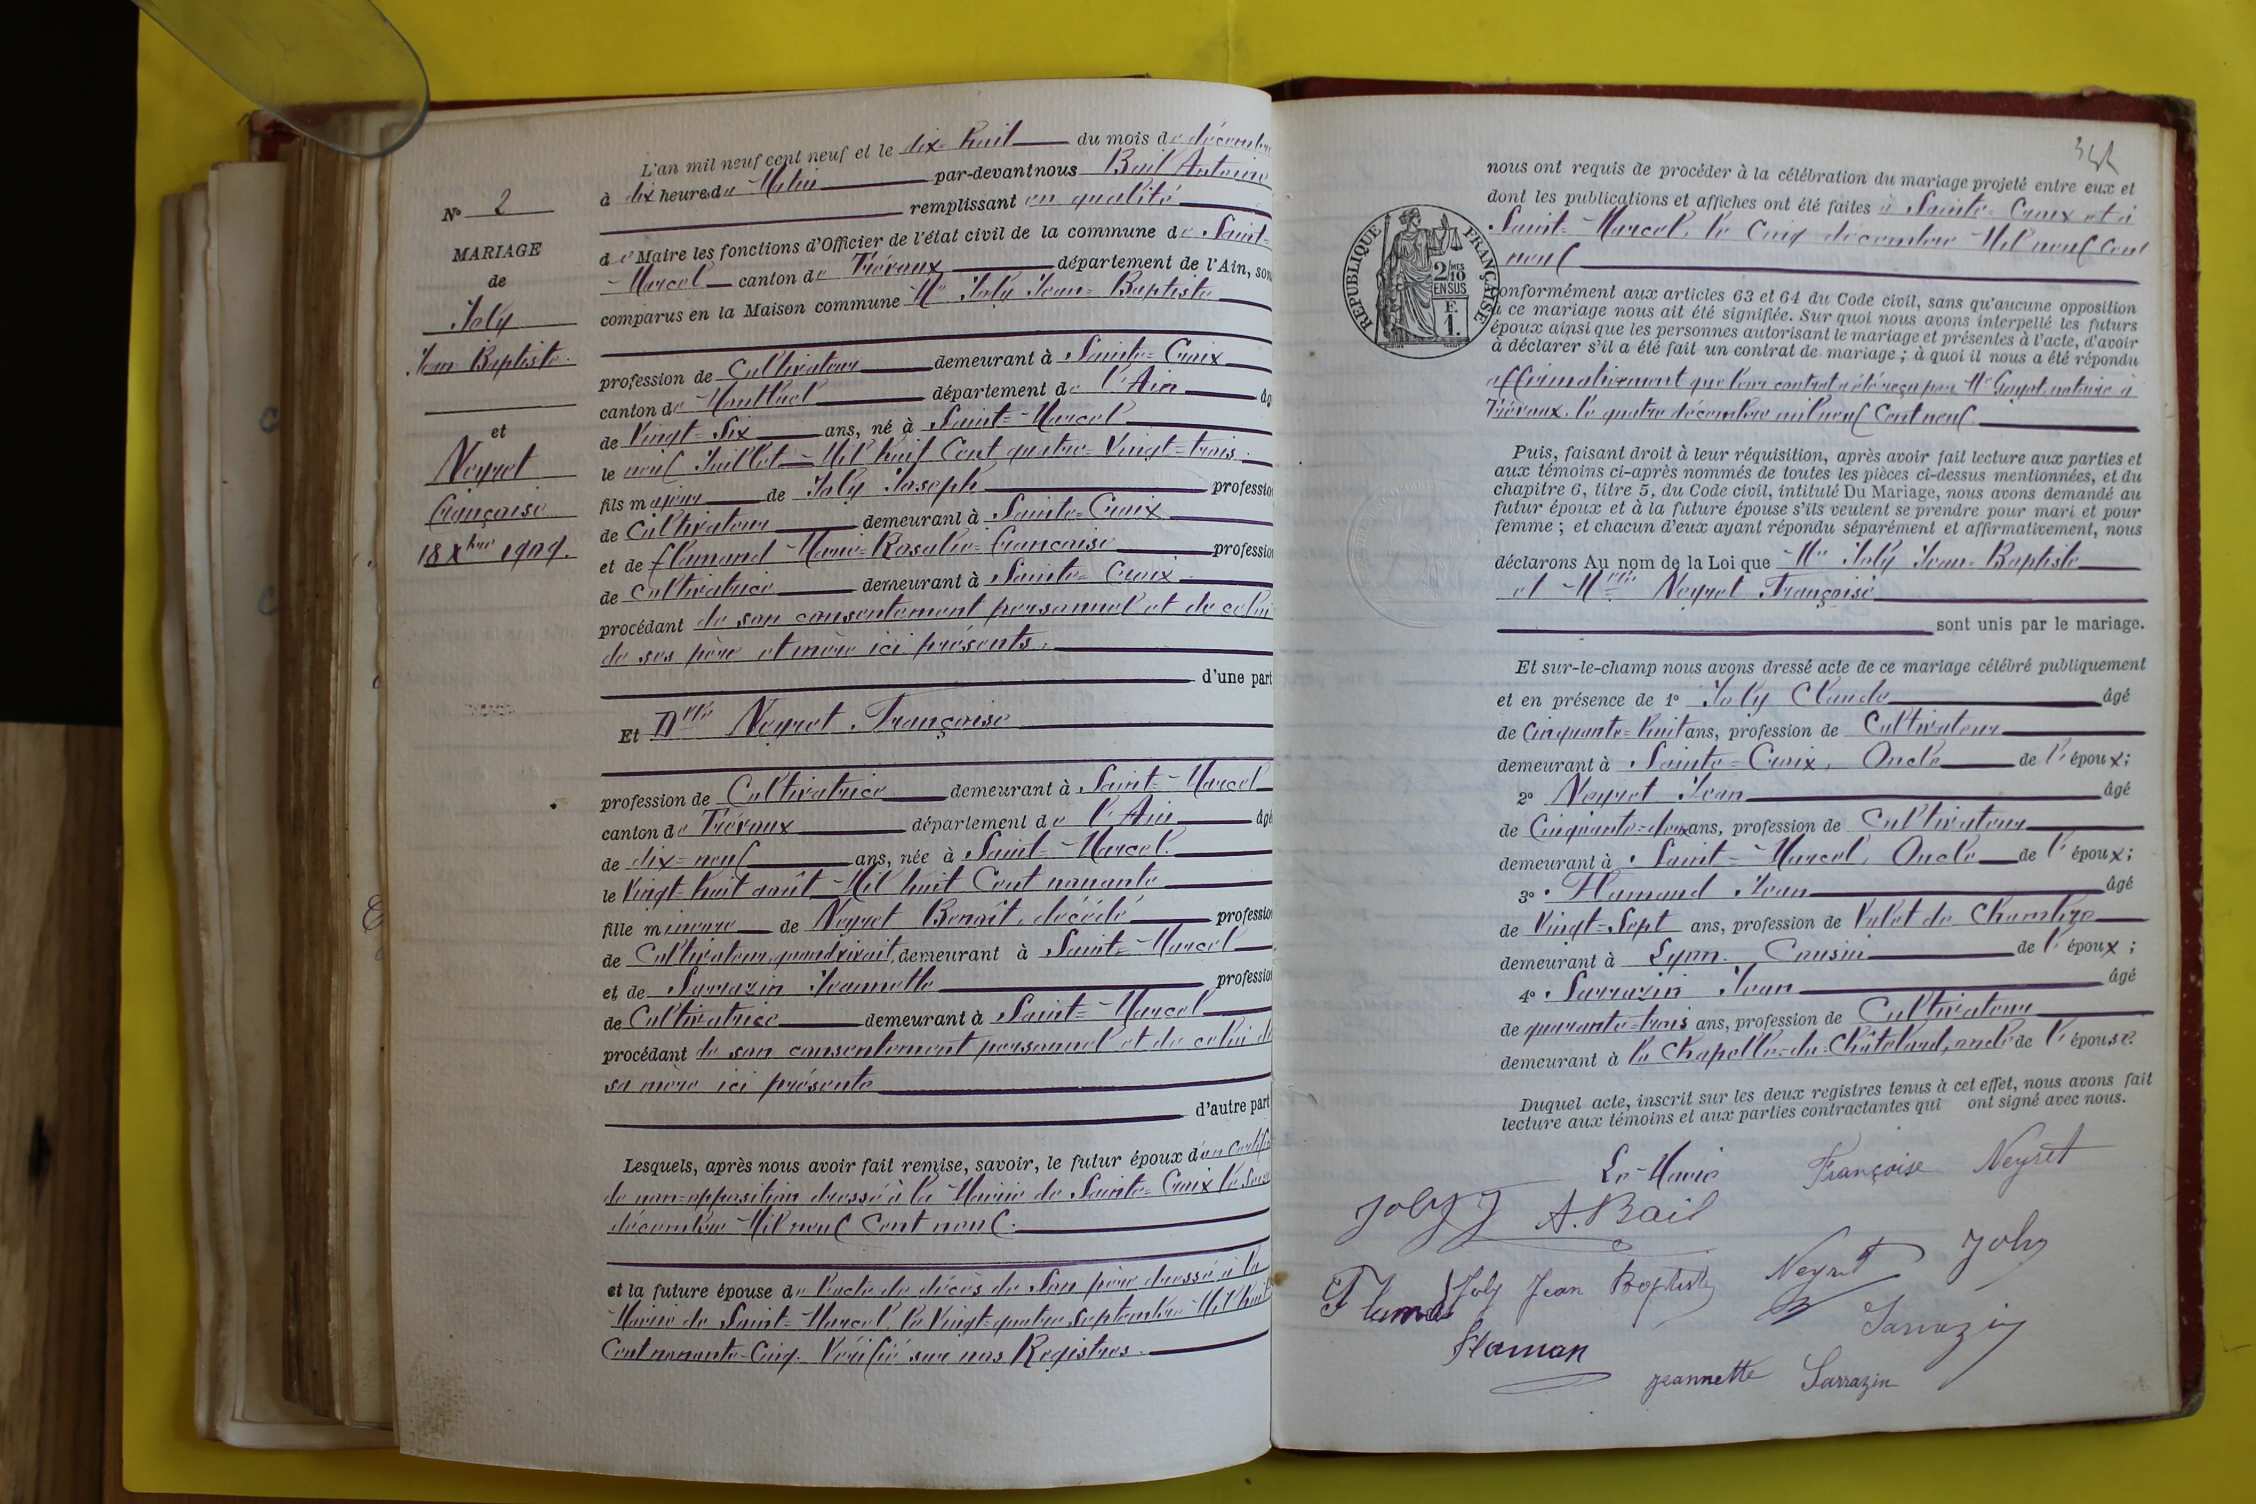 L'an mil neuf cent neuf et le dix-huit du mois de décembre
à dix heures du Matin par-devant nous Bail Antoine
remplissant en qualité
de Maire les fonctions d'Officier de l'état civil de la commune de Saint-
Marcel canton de Trévoux département de l'Ain, sont
comparus en la Maison commune Mr Joly Jean-Baptiste
profession de Cultivateur demeurant à Sainte-Croix
canton de Montluel département de l'Ain âg
de Vingt-Six ans, né à Saint-Marcel
le neuf Juillet Mil huit Cent quatre-Vingt-trois.
fils majeur de Joly Joseph profession
de Cultivateur demeurant à Sainte-Croix
et de flamand Marie-Rosalie-françoise profession
de Cultivatrice demeurant à Sainte-Croix
procédant de son consentement personnel et de celui
de ses père et mère ici présents.
d'une part
Et Dlle Neyret Françoise
profession de Cultivatrice demeurant à Saint-Marcel
canton de Trévoux département de l'Ain âgé
de dix-neuf ans, née à Saint-Marcel.
le Vingt-huit août Mil huit Cent nonante
fille mineure de Neyret Benoît, décédé profession
de Cultivateur, quand vivait, demeurant à Saint-Marcel
et de Sarrazin Jeannette profession
de Cultivatrice demeurant à Saint-Marcel
procédant de son consentement personnel et de celui de
sa mère ici présente
d'autre part
Lesquels, après nous avoir fait remise, savoir, le futur époux d'un certificat
de non-opposition dressé à la Mairie de Sainte-Croix le
décembre Mil neuf Cent neuf.
et la future épouse de l'acte de décès de Son père dressé à la
Mairie de Saint-Marcel, le Vingt-quatre septembre Mil huit
Cent nonante-Cinq. Vérifié sur nos Registres.
N° 2
MARIAGE
de
Joly
Jean-Baptiste.
et
Neyret
françoise
18 Xbre 1909.
nous ont requis de procéder à la célébration du mariage projeté entre eux et
dont les publications et affiches ont été faites à Sainte-Croix et à
Saint-Marcel, le Cinq décembre Mil neuf Cent
neuf
RÉPUBLIQUE FRANÇAISE
2/MES
10
EN SUS
E.
1.
onformément aux articles 63 et 64 du Code civil, sans qu'aucune opposition
à ce mariage nous ait été signifiée. Sur quoi nous avons interpellé les futurs
époux ainsi que les personnes autorisant le mariage et présentes à l'acte, d'avoir
à déclarer s'il a été fait un contrat de mariage ; à quoi il nous a été répondu
affirmativement que leur contrat a été reçu par Me Goyot notaire à
Trévoux, le quatre décembre mil neuf Cent neuf.
Puis, faisant droit à leur réquisition, après avoir fait lecture aux parties et
aux témoins ci-après nommés de toutes les pièces ci-dessus mentionnées, et du
chapitre 6, titre 5, du Code civil, intitulé Du Mariage, nous avons demandé au
futur époux et à la future épouse s'ils veulent se prendre pour mari et pour
femme ; et chacun d'eux ayant répondu séparément et affirmativement, nous
déclarons Au nom de la Loi que Mr Joly Jean-Baptiste
et Mlle Neyret Françoise
sont unis par le mariage.
Et sur-le-champ nous avons dressé acte de ce mariage célébré publiquement
et en présence de 1° Joly Claude âgé
de Cinquante-huit ans, profession de Cultivateur
demeurant à Sainte-Croix, Oncle de l'époux;
2° Neyret Jean âgé
de Cinquante-deux ans, profession de Cultivateur
demeurant à Saint-Marcel, Oncle de l'époux;
3° Flamand Jean âgé
de Vingt-Sept ans, profession de Valet de Chambre
demeurant à Lyon. Cousin de l'époux;
4° Sarrazin Jean âgé
de quarante-trois ans, profession de Cultivateur
demeurant à la Chapelle-du-Châtelard, oncle de l'épouse
Duquel acte, inscrit sur les deux registres tenus à cet effet, nous avons fait
lecture aux témoins et aux parties contractantes qui ont signé avec nous.
Le Maire Françoise Neyret
Joly J A. Bail
Neyret Joly
Flamand Joly Jean Baptiste
Sarrazin
flaman
jeannette Sarrazin